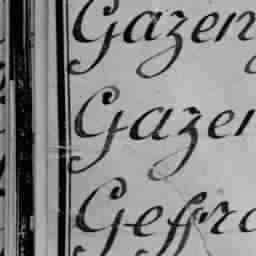 Gazen
Gazen
Geffro